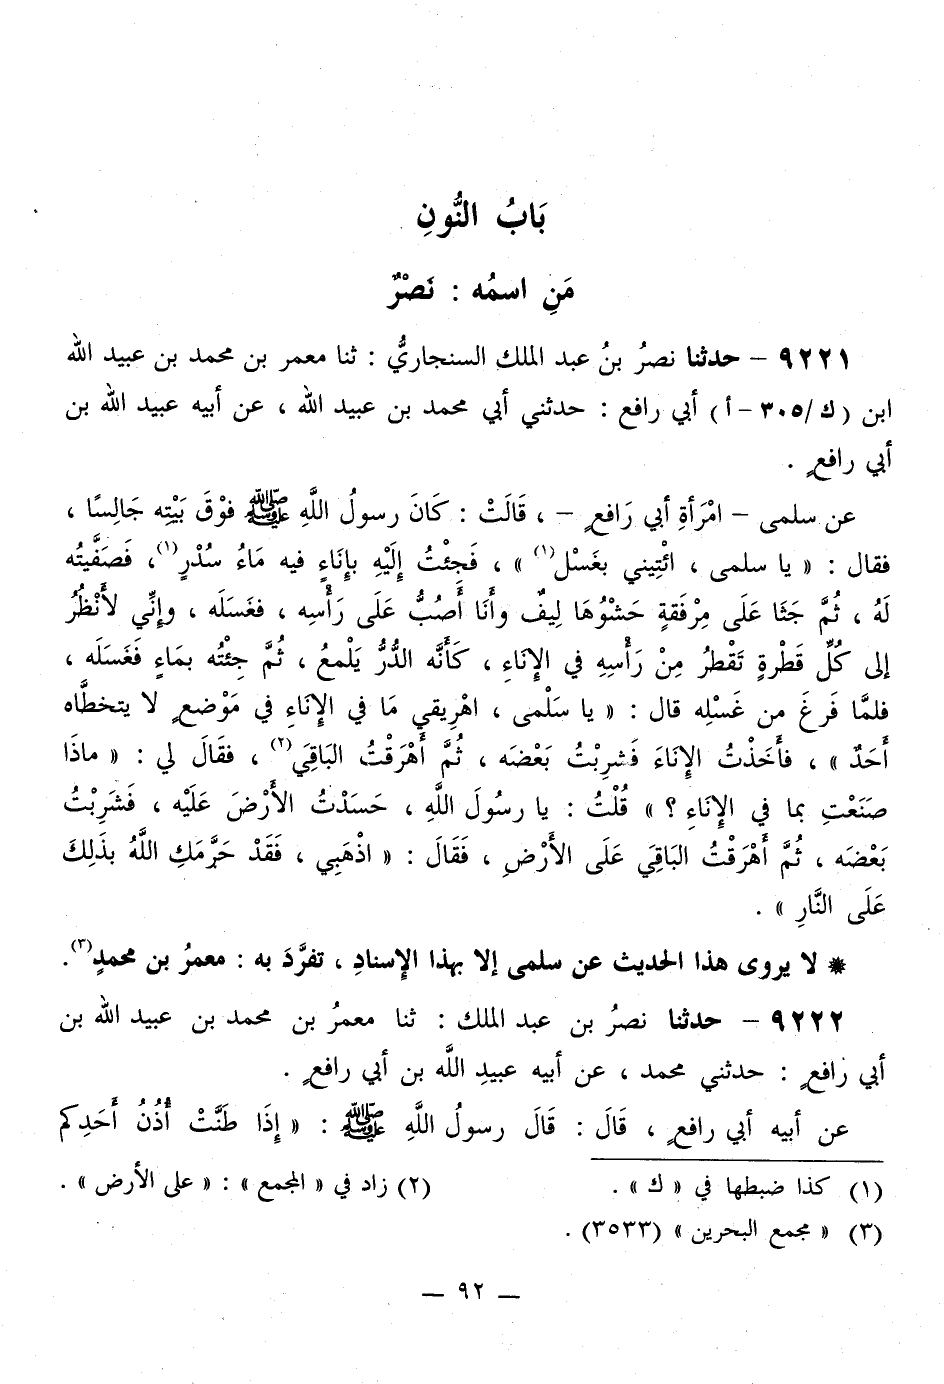 بَابُ النُّونِ
مَنِ اسمُه : نَصْرٌ
٩٢٢١ – حدثنا نصرُ بنُ عبد الملكِ السنجاريُّ : ثنا معمر بن محمد بن عبيد الله
ابن (ك/٣٠٥ - أ) أبي رافع : حدثني أبي محمد بن عبيد الله ، عن أبيه عبيد الله بن
أبي رافعٍ .
عن سلمى – امْرَأةِ أبي رَافعٍ – ، قَالَتْ : كَانَ رسولُ اللَّهِ ﷺ فوْقَ بَيْتِه جَالِسًا ،
فقال : « يا سلمى ، ائْتِيني بغَسْل(١) » ، فَجِئْتُ إِلَيْهِ بإنَاءٍ فيه مَاءُ سُدْرٍ(١)، فَصَفَّيتُه
لَهُ ، ثُمَّ جَثَا عَلَى مِرْفقةٍ حَشْوُهَا لِيفٌ وأنَا أَصُبُّ عَلَى رَأْسِه ، فغَسَلَه ، وإنِّي لأَنْظُرُ
إلى كُلِّ قَطْرةٍ تَقْطرُ مِنْ رَأْسِهِ في الإنَاءِ ، كَأنَّه الدُّرُّ يَلْمعُ ، ثُمَّ جِئْتُه بمَاءٍ فَغَسَلَه ،
فلمَّا فَرغَ من غَسْلِه قال : « يا سَلْمى ، اهْرِيقي مَا في الإنَاءِ في مَوْضعٍ لا يتخطَّاه
أَحَدٌ » ، فأخَذْتُ الإنَاءَ فَشرِبْتُ بَعْضَه ، ثُمَّ أَهْرَقْتُ البَاقِيَ(٢) ، فقَالَ لي : « ماذَا
صَنَعْتِ بما في الإنَاءِ ؟ » قُلْتُ : يا رسُولَ اللَّهِ ، حَسَدْتُ الأَرْضَ عَلَيْه ، فَشَرِبْتُ
بَعْضَه ، ثُمَّ أَهْرَقْتُ البَاقِيَ عَلَى الأَرْضِ ، فَقَالَ : « اذْهَبي ، فَقَدْ حَرَّمَكِ اللَّهُ بذَلِكَ
عَلَى النَّارِ » .
* لا يروى هذا الحديث عن سلمى إلا بهذا الإسنادِ ، تفرَّدَ به : معمرُ بن محمدٍ(٣).
٩٢٢٢ – حدثنا نصرُ بن عبد الملك : ثنا معمرُ بن محمد بن عبيد الله بن
أبي رَافعٍ : حدثني محمد ، عن أبيه عبيدِ اللَّه بن أبي رافعٍ .
عن أبيه أبي رافعٍ ، قَالَ : قَالَ رسولُ اللَّهِ ﷺ : « إذَا طَنَّتْ أُذُنُ أَحَدِكم
(١) كذا ضبطها في « ك » .
(٢) زاد في « المجمع » : « على الأرض » .
(٣) « مجمع البحرين » (٣٥٣٣) .
— ٩٢ —